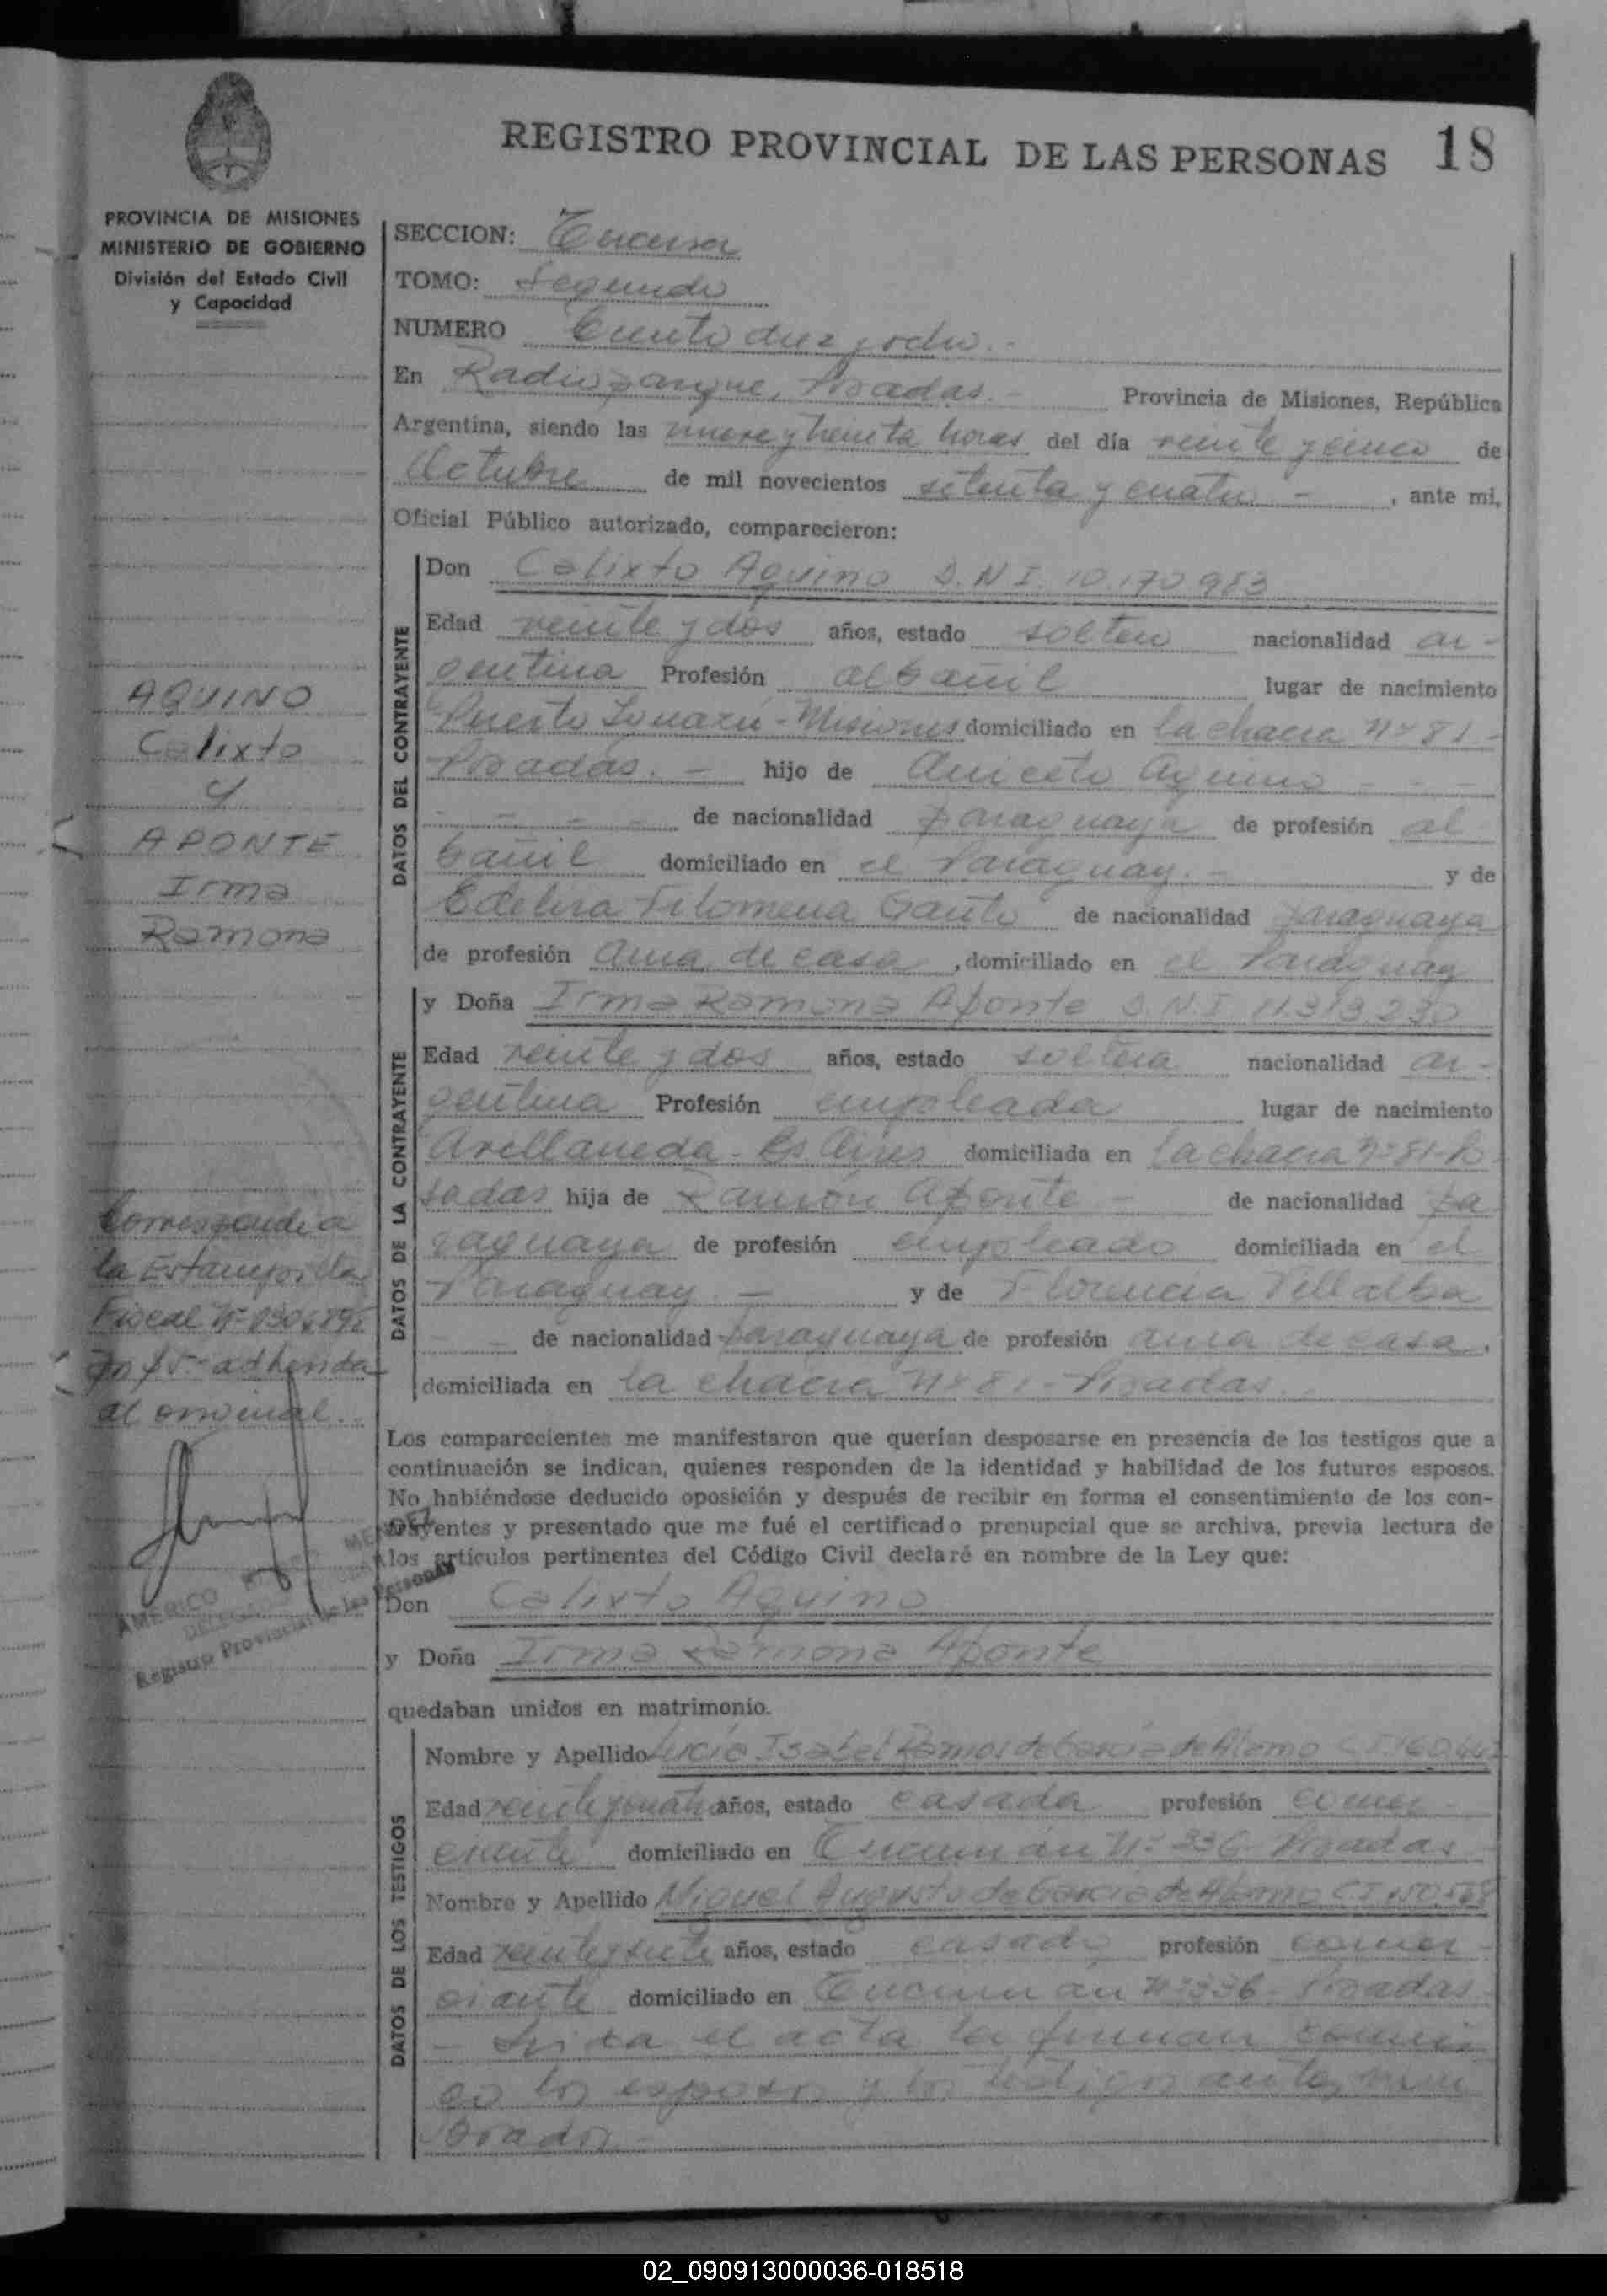 REGISTRO PROVINCIAL DE LAS PERSONAS 18
PROVINCIA DE MISIONES
MINISTERIO DE GOBIERNO
División del Estado Civil
y Capacidad
SECCION: Tercera
TOMO: Segundo
NUMERO Ciento diez y ocho.-
En Radioparque, Posadas.- Provincia de Misiones, República
Argentina, siendo las nueve y treinta horas del día veinte y cinco de
Octubre de mil novecientos setenta y cuatro - , ante mi,
Oficial Público autorizado, comparecieron:
DATOS DEL CONTRAYENTE
Don Calixto Aquino D.N.I. 10.170.983
Edad veinte y dos años, estado soltero nacionalidad ar-
gentina Profesión albañil lugar de nacimiento
Puerto Iguazú - Misiones domiciliado en la chacra Nº 81 -
Posadas. - hijo de Aniceto Aquino - - -
- - - - de nacionalidad paraguaya de profesión al
bañil domiciliado en el Paraguay. - y de
Edelira Filomena Gauto de nacionalidad paraguaya
de profesión ama de casa , domiciliado en el Paraguay
DATOS DE LA CONTRAYENTE
y Doña Irma Ramona Aponte D.N.I. 11.313.230
Edad veinte y dos años, estado soltera nacionalidad ar-
gentina Profesión empleada lugar de nacimiento
Avellaneda - Bs. Aires domiciliada en la chacra Nº 81 - Po
sadas hija de Ramón Aponte - de nacionalidad pa
raguaya de profesión empleado domiciliada en el
Paraguay. - y de Florencia Villalba
- - de nacionalidad paraguaya de profesión ama de casa,
domiciliada en la chacra Nº 81 - Posadas.
AQUINO
Calixto
y
APONTE
Irma
Ramona
Corresponde a
la Estampilla
Fiscal Nº
adherida
al original.
AMERICO MENDEZ
DELEGADO
Registro Provincial de las Personas
Los comparecientes me manifestaron que querían desposarse en presencia de los testigos que a
continuación se indican, quienes responden de la identidad y habilidad de los futuros esposos.
No habiéndose deducido oposición y después de recibir en forma el consentimiento de los con-
trayentes y presentado que me fué el certificado prenupcial que se archiva, previa lectura de
los artículos pertinentes del Código Civil declaré en nombre de la Ley que:
Don Calixto Aquino
y Doña Irma Ramona Aponte
quedaban unidos en matrimonio.
DATOS DE LOS TESTIGOS
Nombre y Apellido Lucía Isabel Ramos de García de Alomo C.I.
Edad veinte y cuatro años, estado casada profesión comer-
ciante domiciliado en Tucumán Nº 336 - Posadas
Nombre y Apellido Miguel Augusto de García de Alomo C.I.
Edad veinte y siete años, estado casado profesión comer-
ciante domiciliado en Tucumán Nº 336 - Posadas
- Leída el acta la firman conmi
go los esposos y los testigos ante
02_090913000036-018518